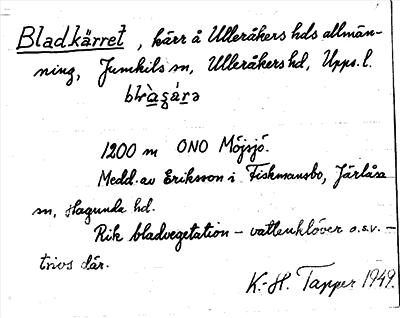 Bladkärret, kärr å Ulleråkers hds allmän-
ning, Jumkils sn, Ulleråkers hd, Upps. l.
1200 m ONO Möjsjö.
Medd. av Eriksson i Fiskmansbo, Järlåsa
sn, Hagunda hd.
Rik bladvegetation – vattenklöver o.s.v. –
trivs där.
K.-H. Tapper 1949.